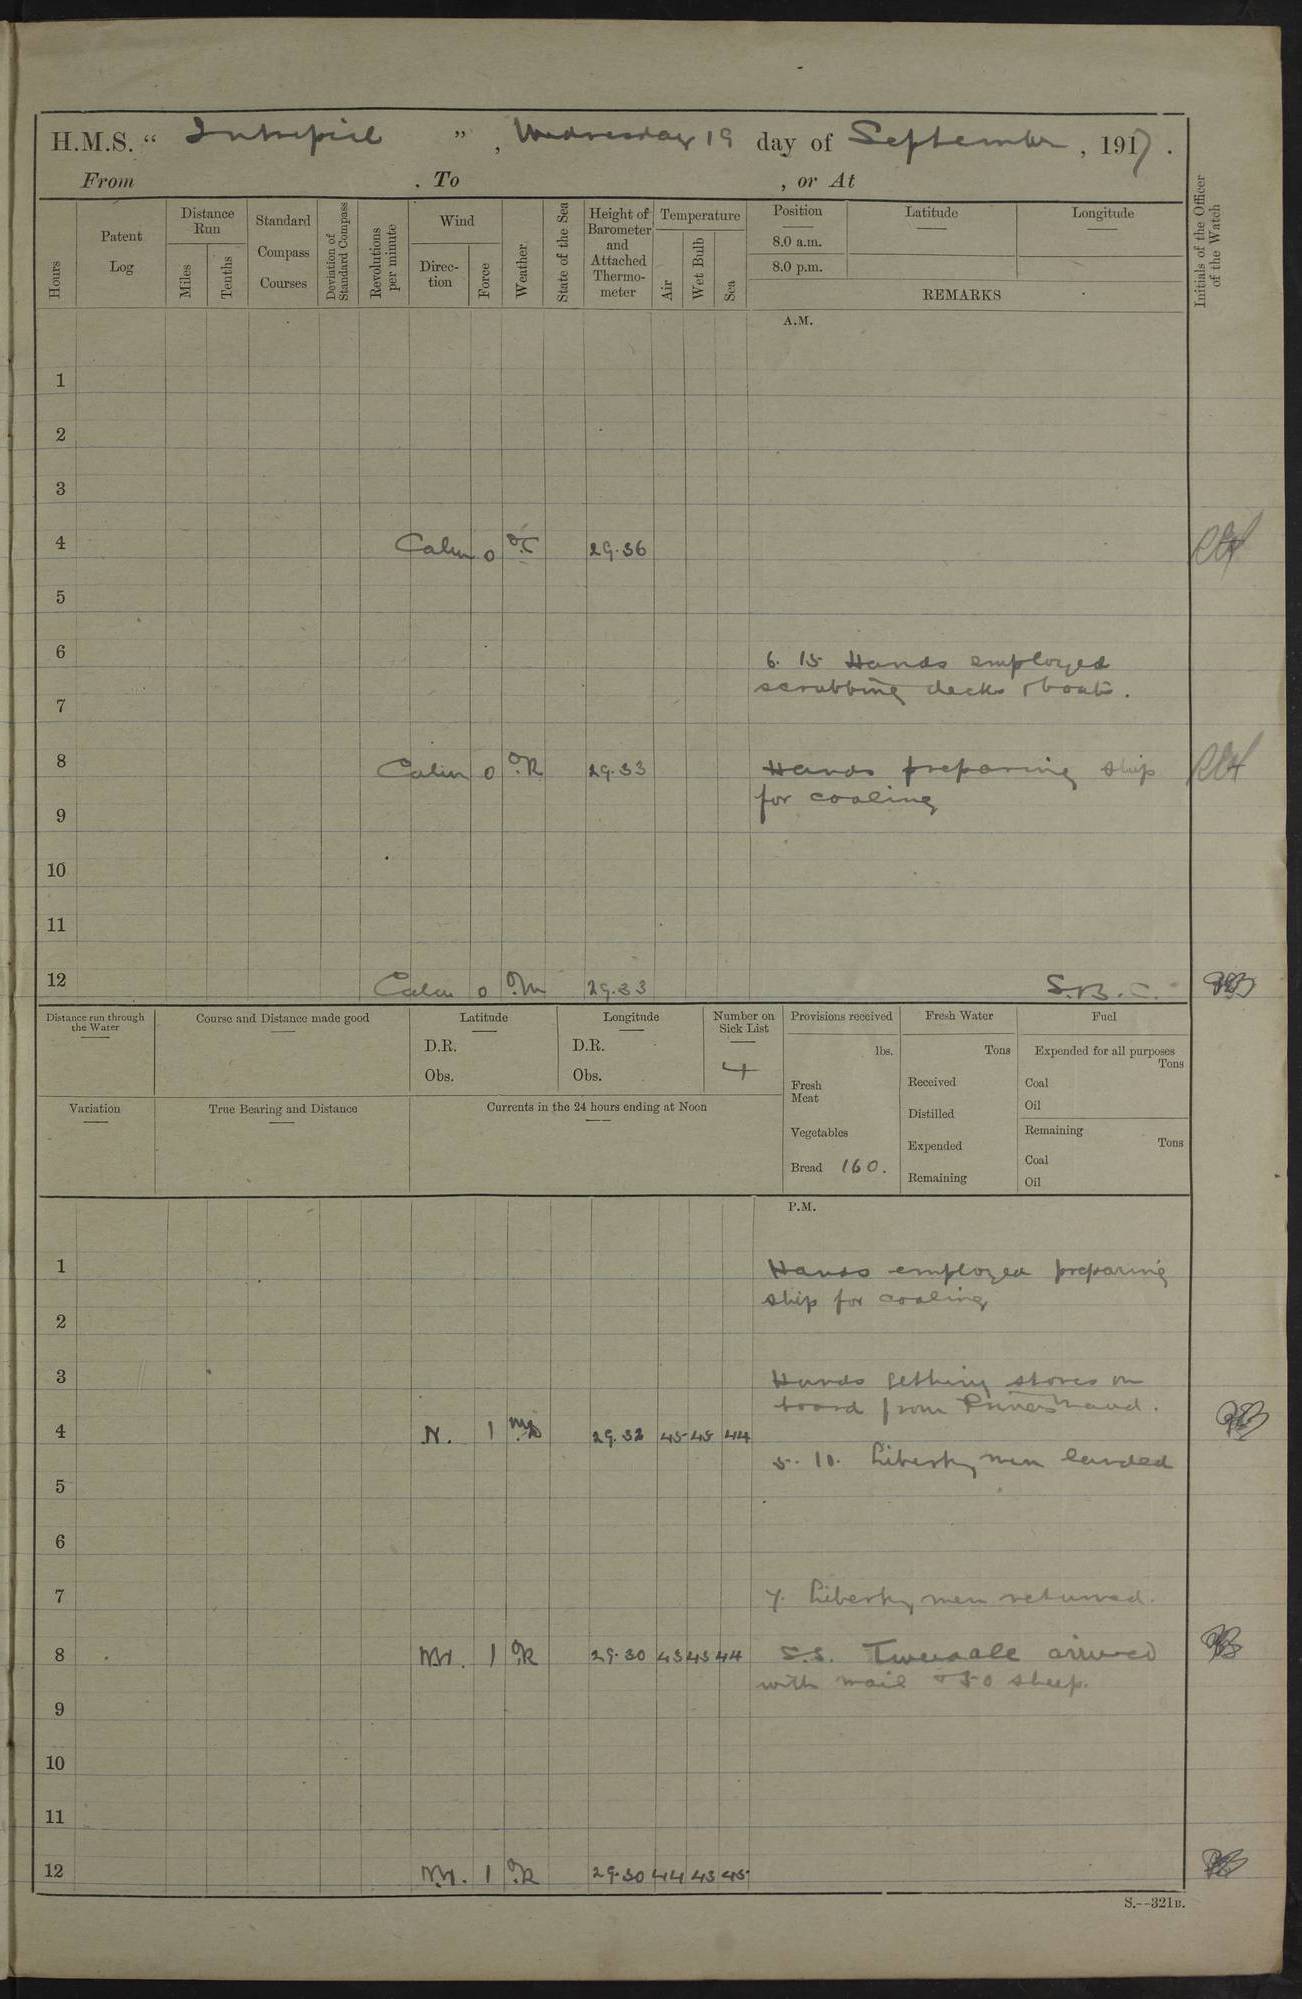 H.M.S. " Intrepid ", Wednesday 19 day of September, 1917.
From . To , or At
Initials of the Officer of the Watch
Hours
Patent Log
Distance Run
Miles
Tenths
Standard Compass Courses
Deviation of Standard Compass
Revolutions per minute
Wind
Direc-tion
Force
Weather.
State of the Sea
Height of Barometer and Attached Thermo-meter
Temperature
Air
Wet Bulb
Sea
Position
8.0 a.m.
8.0 p.m.
Latitude
Longitude
REMARKS
A.M.
1
2
3
4 Calm 0 o.c 29.36
5
6 6. 15 Hands employed
scrubbing decks & boats.
7
8 Calm 0 o.R 29.33 Hands preparing ship
for coaling
9
10
11
12 Calm 0 o.m 29.33 S.B.C.
Distance run through the Water
Course and Distance made good
Latitude
D.R.
Obs.
Longitude
D.R.
Obs.
Number on Sick List
4
Variation
True Bearing and Distance
Currents in the 24 hours ending at Noon
Provisions received
lbs.
Fresh Meat
Vegetables
Bread 160.
Fresh Water
Tons
Received
Distilled
Expended
Remaining
Fuel
Expended for all purposes
Tons
Coal
Oil
Remaining
Tons
Coal
Oil
P.M.
1 Hands employed preparing
ship for coaling
2
3 Hands getting stores on
board from
4 N. 1 29.32 45 45 44
5. 10. Liberty men landed
5
6
7 7. Liberty men returned.
8 NW. 1 o.R 29.30 43 43 44 S.S. Tweedale arrived
with mail & 50 sheep.
9
10
11
12 NW. 1 o.R 29.30 44 43 45
S.--321B.